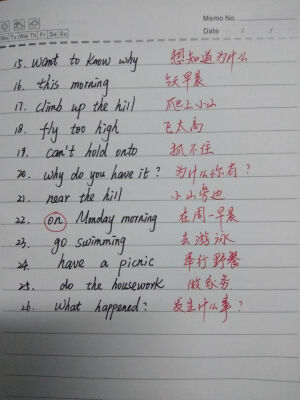 Memo No.
Mo Tu We Th Fr Sa Su
Date / /
15. want to know why 想知道为什么
16. this morning 今天早晨
17. climb up the hill 爬上小山
18. fly too high 飞太高
19. can't hold onto 抓不住
20. why do you have it? 为什么你有?
21. near the hill 小山旁边
22. on Monday morning 在周一早晨
23. go swimming 去游泳
24. have a picnic 举行野餐
25. do the housework 做家务
26. What happened? 发生什么事?